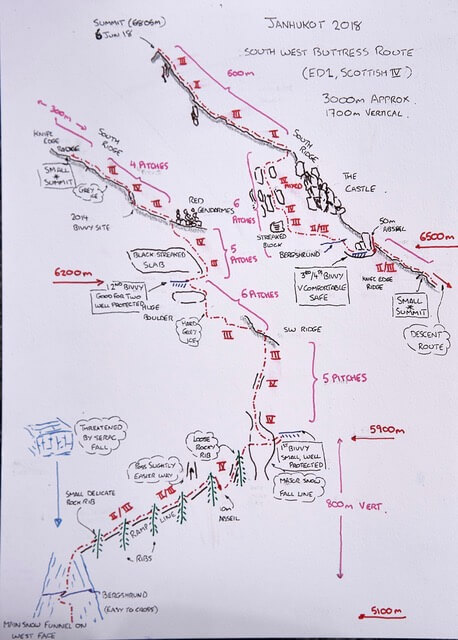 JANHUKOT 2018
SOUTH WEST BUTTRESS ROUTE
(ED1, SCOTTISH IV)
3000m APPROX.
1700m VERTICAL.
SUMMIT (6805m)
6 JUN 18
III
II
600m
II
III
SOUTH
RIDGE
300m
KNIFE
EDGE
RIDGE
SOUTH
RIDGE
4 PITCHES
SMALL
SUMMIT
GREY
ICE
III
IV
III
2014
BIVVY SITE
RED
GENDARMES
6
PITCHES
IV
MIXED
IV
II/III
THE
CASTLE
STREAKED
BLOCK
BERGSHRUND
50m
ABSEIL
6500m
3RD/4TH BIVVY
V COMFORTABLE
SAFE
III
KNIFE EDGE
RIDGE
SMALL
SUMMIT
DESCENT
ROUTE
IV
III
5
PITCHES
BLACK STREAKED
SLAB
6200m
2ND BIVVY
GOOD FOR TWO
WELL PROTECTED
HUGE
BOULDER
6 PITCHES
HARD
GREY
ICE
III
SW RIDGE
III
IV
5 PITCHES
5900m
1ST BIVVY
SMALL, WELL
PROTECTED
MAJOR SNOW
FALL LINE
THREATENED
BY SERAC
FALL
LOOSE
ROCKY
RIB
POSS SLIGHTLY
EASIER WAY
IV
10m
ABSEIL
800m VERT.
SMALL DELICATE
ROCK RIB
II/III
RAMP
LINE
II/III
RIBS
BERGSHRUND
(EASY TO CROSS)
MAIN SNOW FUNNEL ON
WEST FACE
5100m